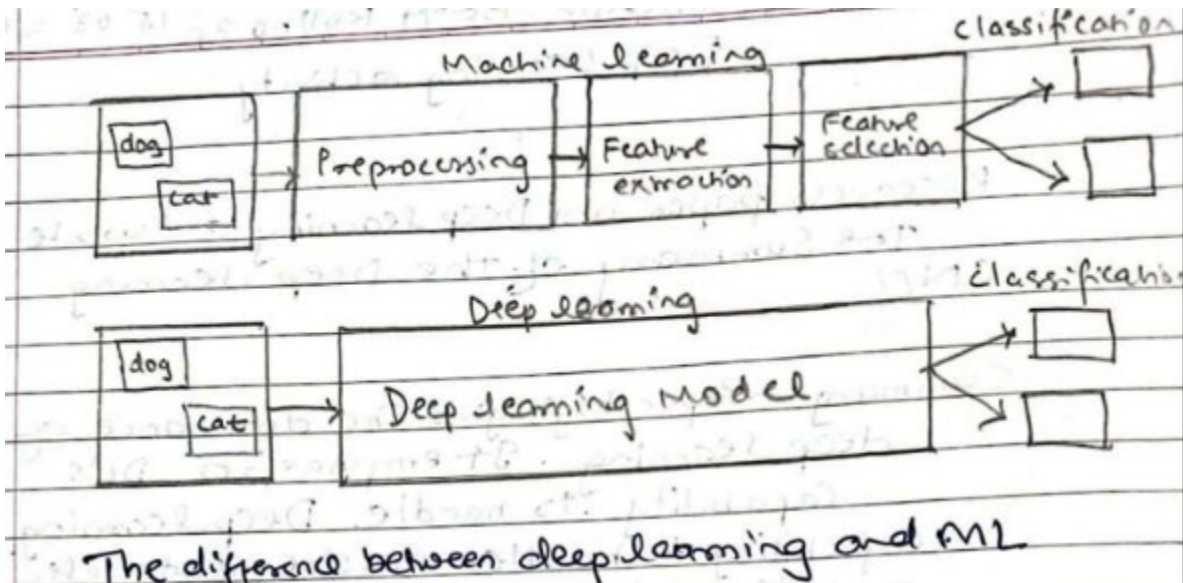 classification
Machine learning
dog
cat
Preprocessing
Feature
extraction
Feature
selection
Deep learning
classification
dog
cat
Deep learning Model
The difference between deep learning and ML